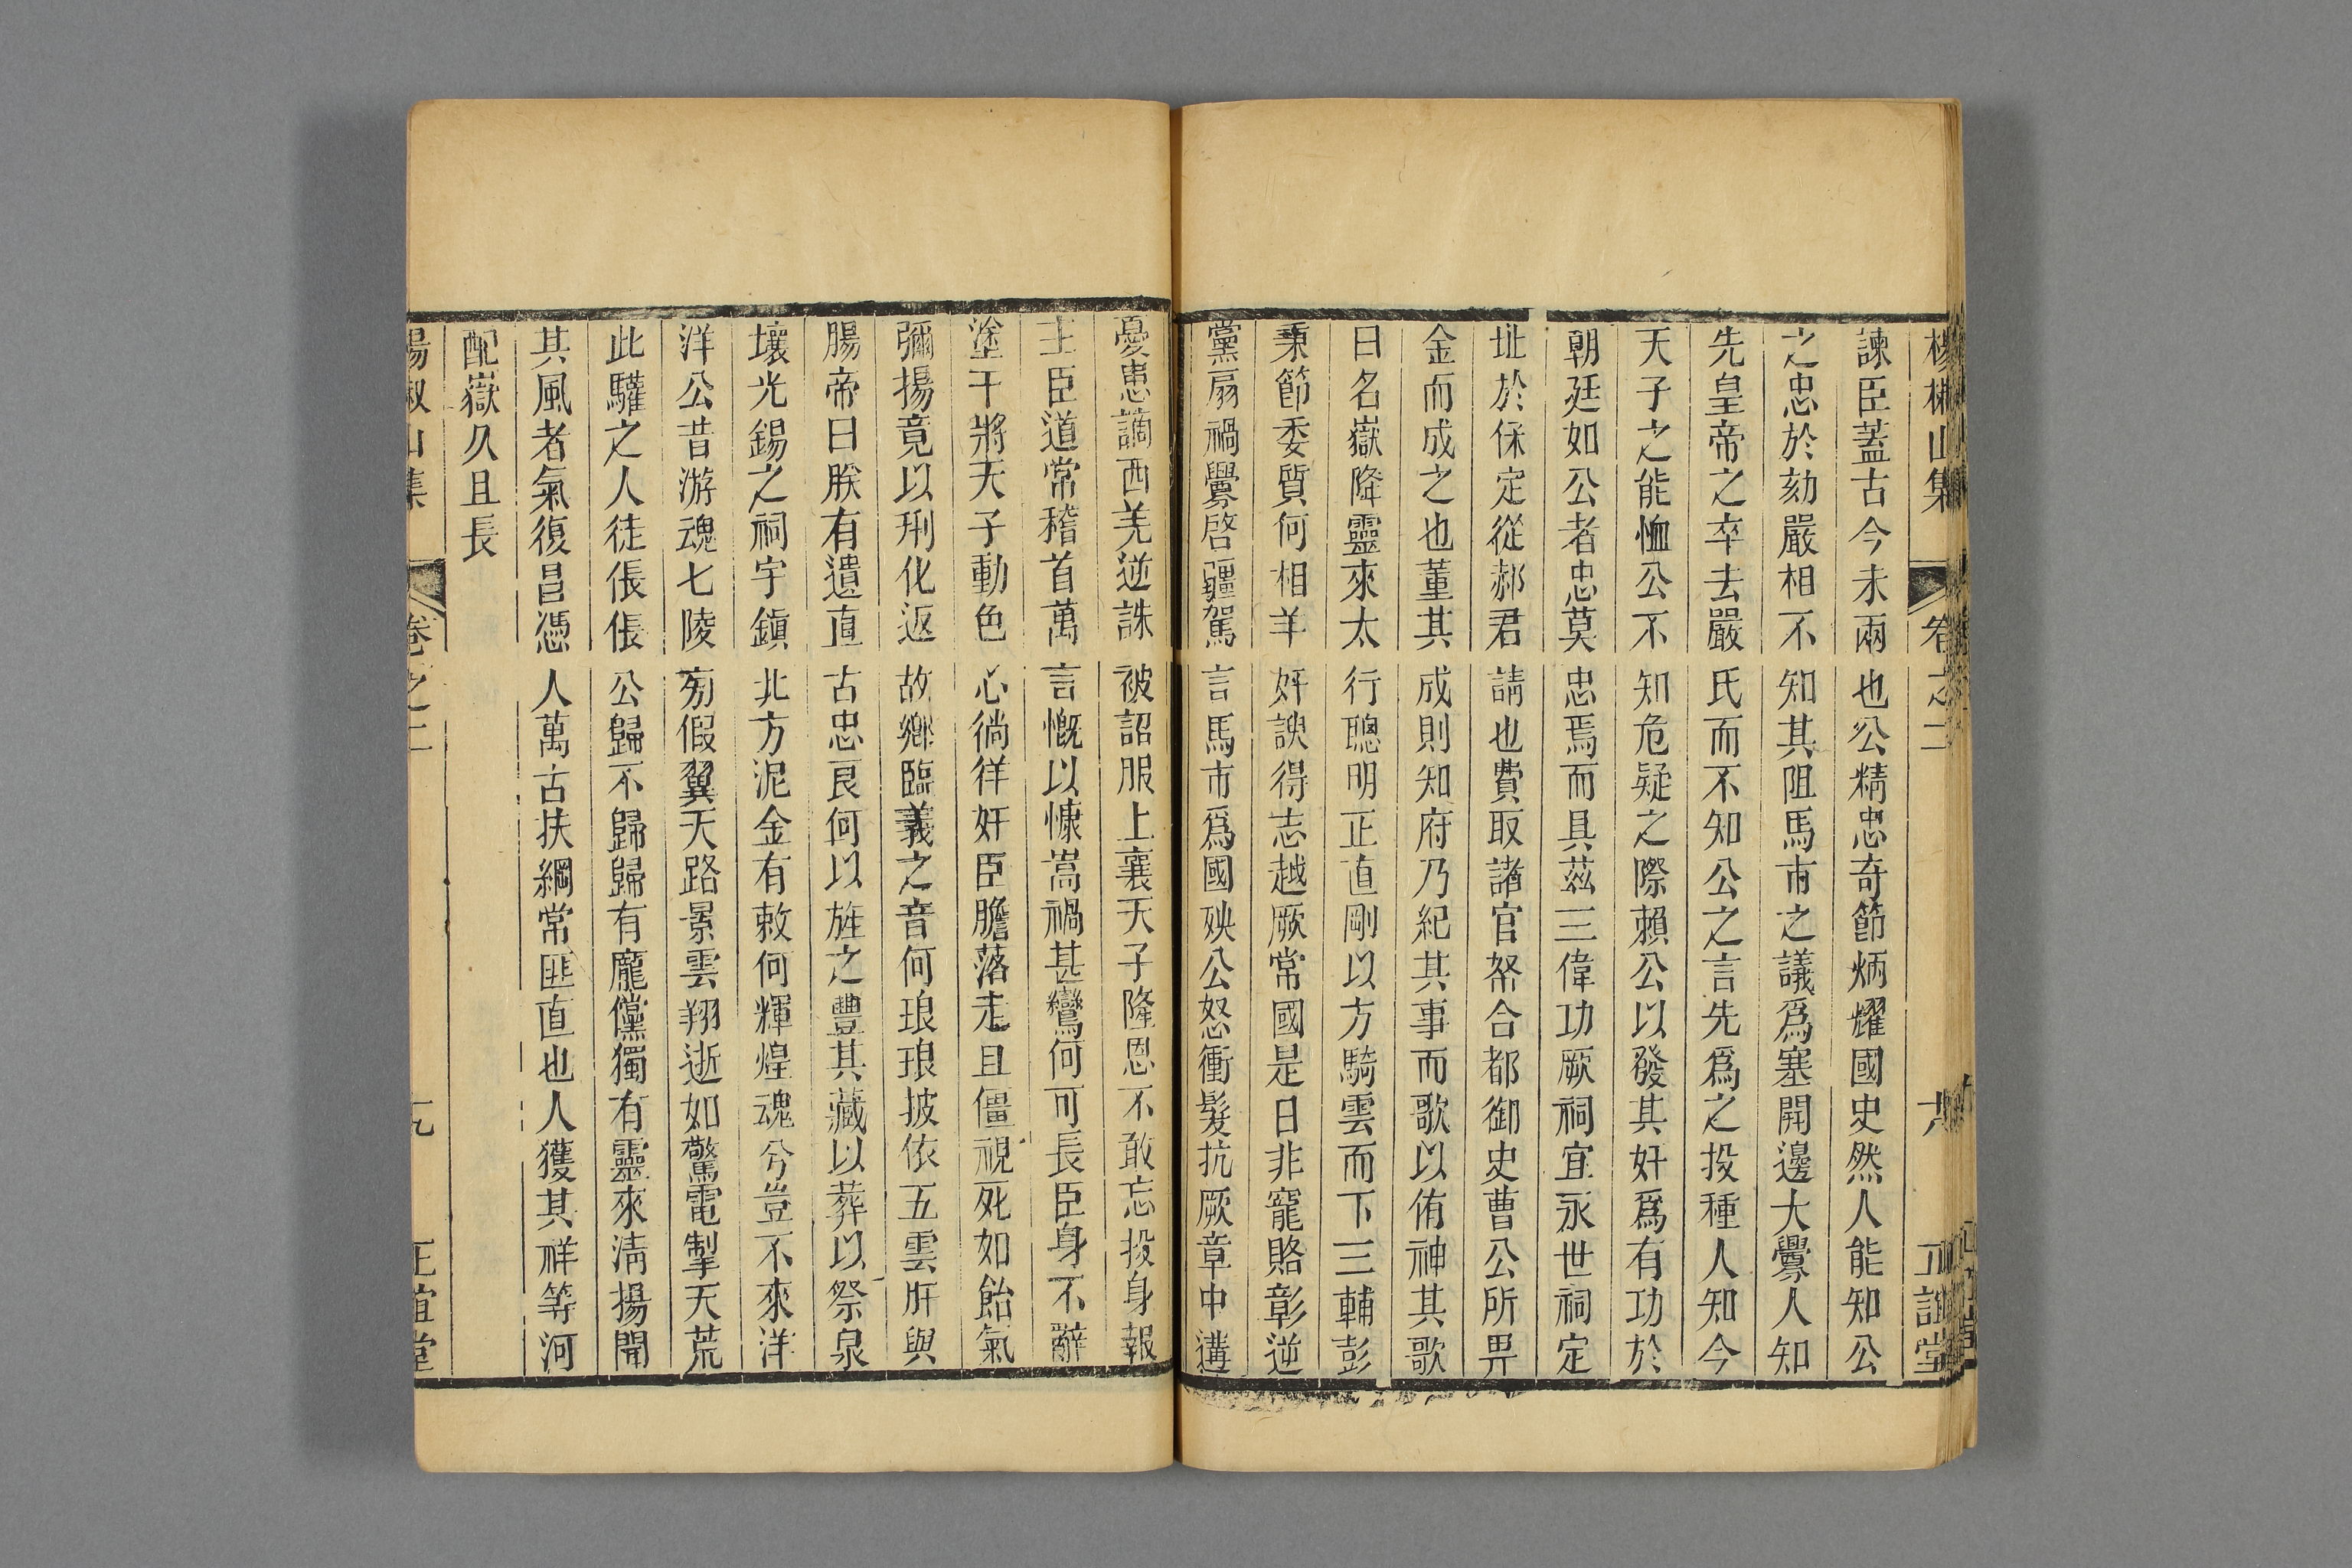 楊椒山集 卷之二 六 正誼堂
諫臣蓋古今未兩也公精忠奇節炳燿國史然人能知公
之忠於劾嚴相不知其阻馬市之議爲塞開邊大釁人知
先皇帝之卒去嚴氏而不知公之言先爲之投種人知今
天子之能恤公不知危疑之際賴公以發其奸爲有功於
朝廷如公者忠莫忠焉而具茲三偉功厥祠宜永世祠定
址於保定從郝君請也費取諸官帑合都御史曹公所畀
金而成之也董其成則知府乃紀其事而歌以侑神其歌
曰名嶽降靈來太行聰明正直剛以方騎雲而下三輔彭
秉節委質何相羊奸諛得志越厥常國是日非寵賂彰逆
黨扇禍釁啓疆駕言馬市爲國殃公怒衝髮抗厥章中遘
憂患謫西羌逆誅被詔服上襄天子隆恩不敢忘投身報
主臣道常稽首萬言慨以慷嵩禍甚鸞何可長臣身不辭
塗干將天子動色心徜徉奸臣膽落走且僵視死如飴氣
彌揚竟以刑化返故鄉臨義之音何琅琅披依五雲肝與
腸帝曰朕有遺直古忠良何以旌之豐其藏以葬以祭泉
壤光錫之祠宇鎮北方泥金有敕何輝煌魂兮豈不來洋
洋公昔游魂七陵旁假翼天路景雲翔逝如驚電掣天荒
此驩之人徒倀倀公歸不歸歸有龐儻獨有靈來淸揚聞
其風者氣復昌憑人萬古扶綱常匪直也人獲其祥等河
配嶽久且長
楊椒山集 卷之二 正誼堂